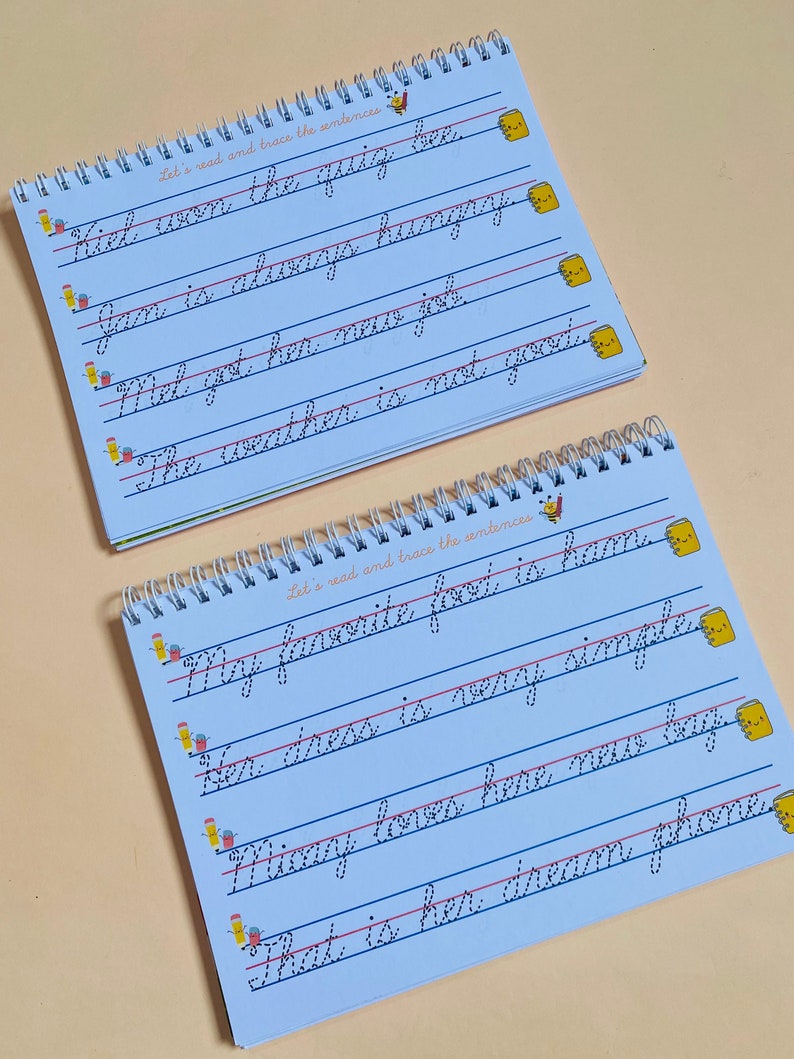 Let's read and trace the sentences
Kiel won the quiz bee.
Jam is always hungry.
Mel got her new job.
The weather is not good.
Let's read and trace the sentences
My favorite food is ham.
Her dress is very simple.
Mixxy loves here new bag.
That is her dream phone.